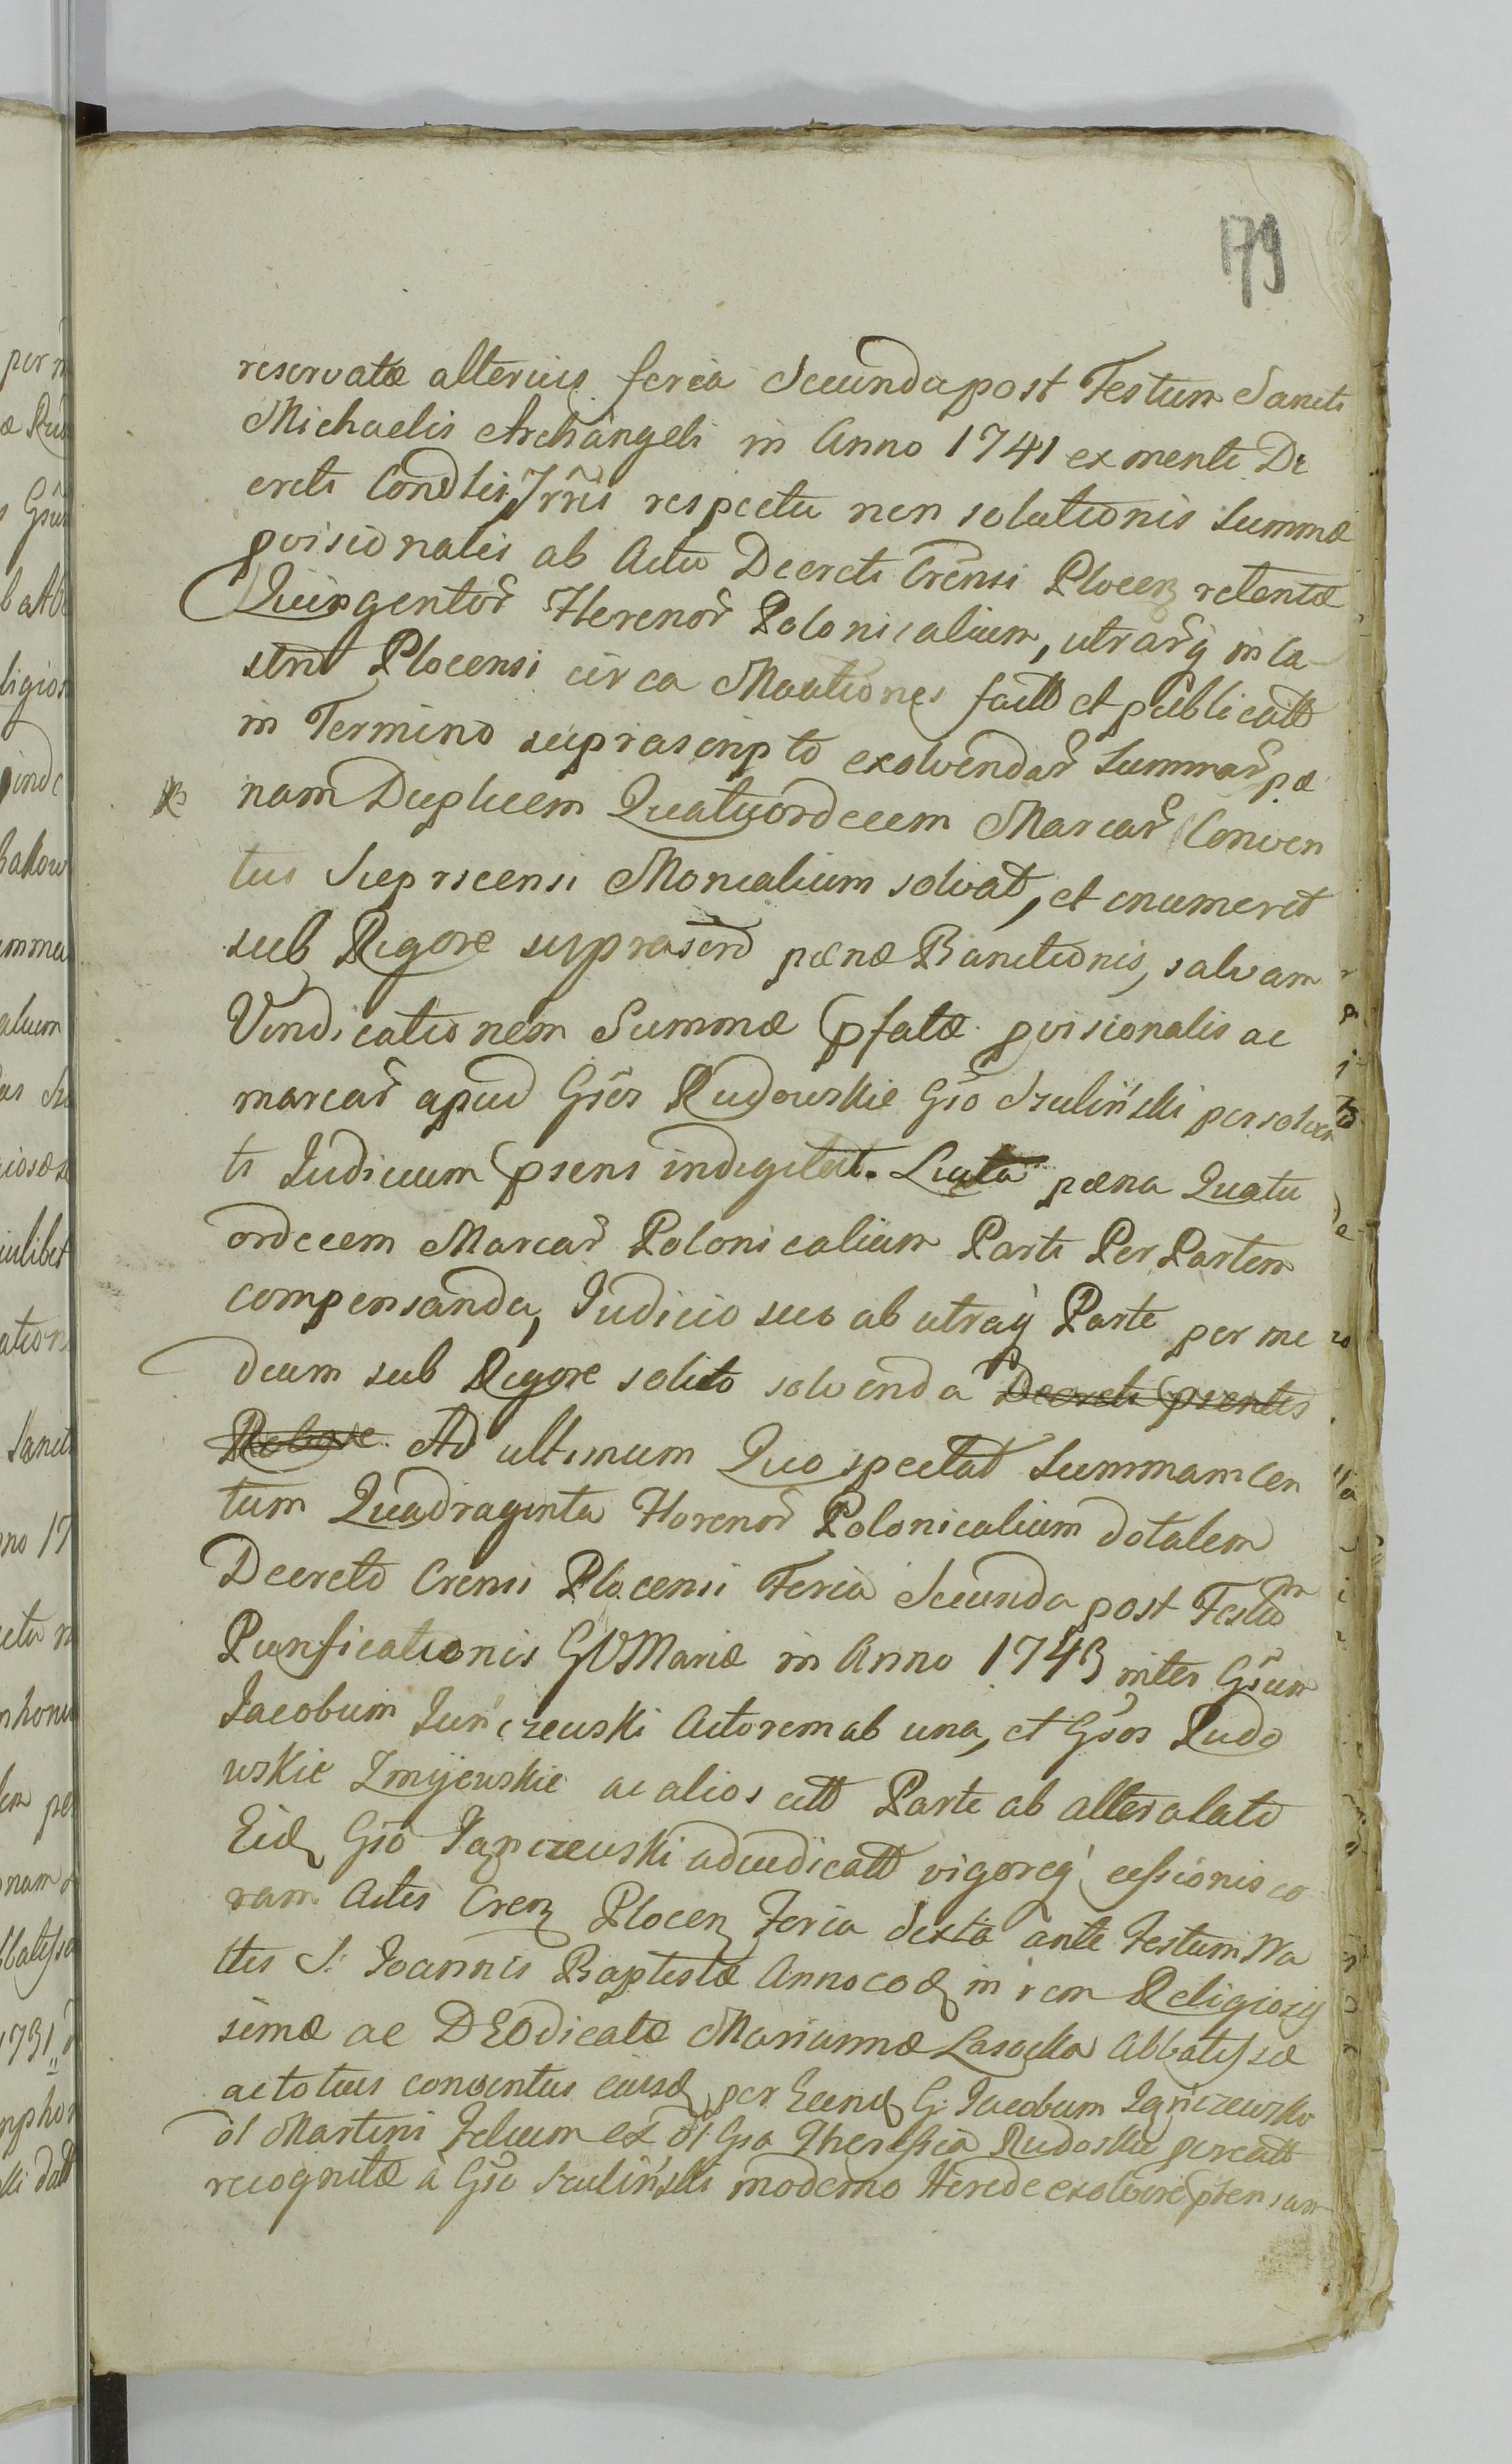 179
reservatæ alterius feria Secunda post Festum Sancti
Michaelis Archangeli in Anno 1741 ex mente De
creti Condlis Jrris respectu non solutionis Summæ
pvisionalis ab Actu Decreti Crensi Plocen retentæ
Quingentor Florenor Polonicalium, utrarq in Ca-
strū Plocensi circa Mōationes factt et publicatt
in Termino suprascripto exolvendar Summar pæ
nam Duplicem Quatuordecem Marcar Conven
tus Sieprscensi Monialium solvat, et enumeret
sub Rigore suprascrō pænæ Banitionis, salvam
Vindicationem Summæ pfatæ pvisionalis ac
marcar apud Gsos Rudowskie Gso Szuliński persolven
ti Judicium psens indigitat. Luita pæna Quatu
ordecem Marcar Polonicalium Parti Per Partem
compensanda, Judicio suo ab utraq Parte per me
dium sub Rigore solito solvenda Decreti psentis
Robore. Ad ultimum Quo spectat Summam Cen
tum Quadraginta Florenor Polonicalium dotalem
Decreto Crensi Plocensi Feria Secunda post Festum
Purificationis GVMariæ in Anno 1743 inter Gsum
Jacobum Junczewski Actorem ab una, et Gsos Rudo
wskie Zmijewskie ac alios citt Parte ab altera lato
Eid Gso Janczewski adiudicatt vigoreq cessionis co
ram Actis Cren Plocen Feria Sexta ante Festum Na
ttis S: Joannis Baptistæ Anno eod in rem Religiosis
simæ ac DEOdicatæ Mariannæ Lasocka Abbatissæ
ac totius conventus eiusd per Eund G: Jacobum Janczewski
ol Martini Filium ex ol Gsa Theressia Rudoska pcreatt
recognitæ à Gso Szuliński moderno Herede exolvere ptensam